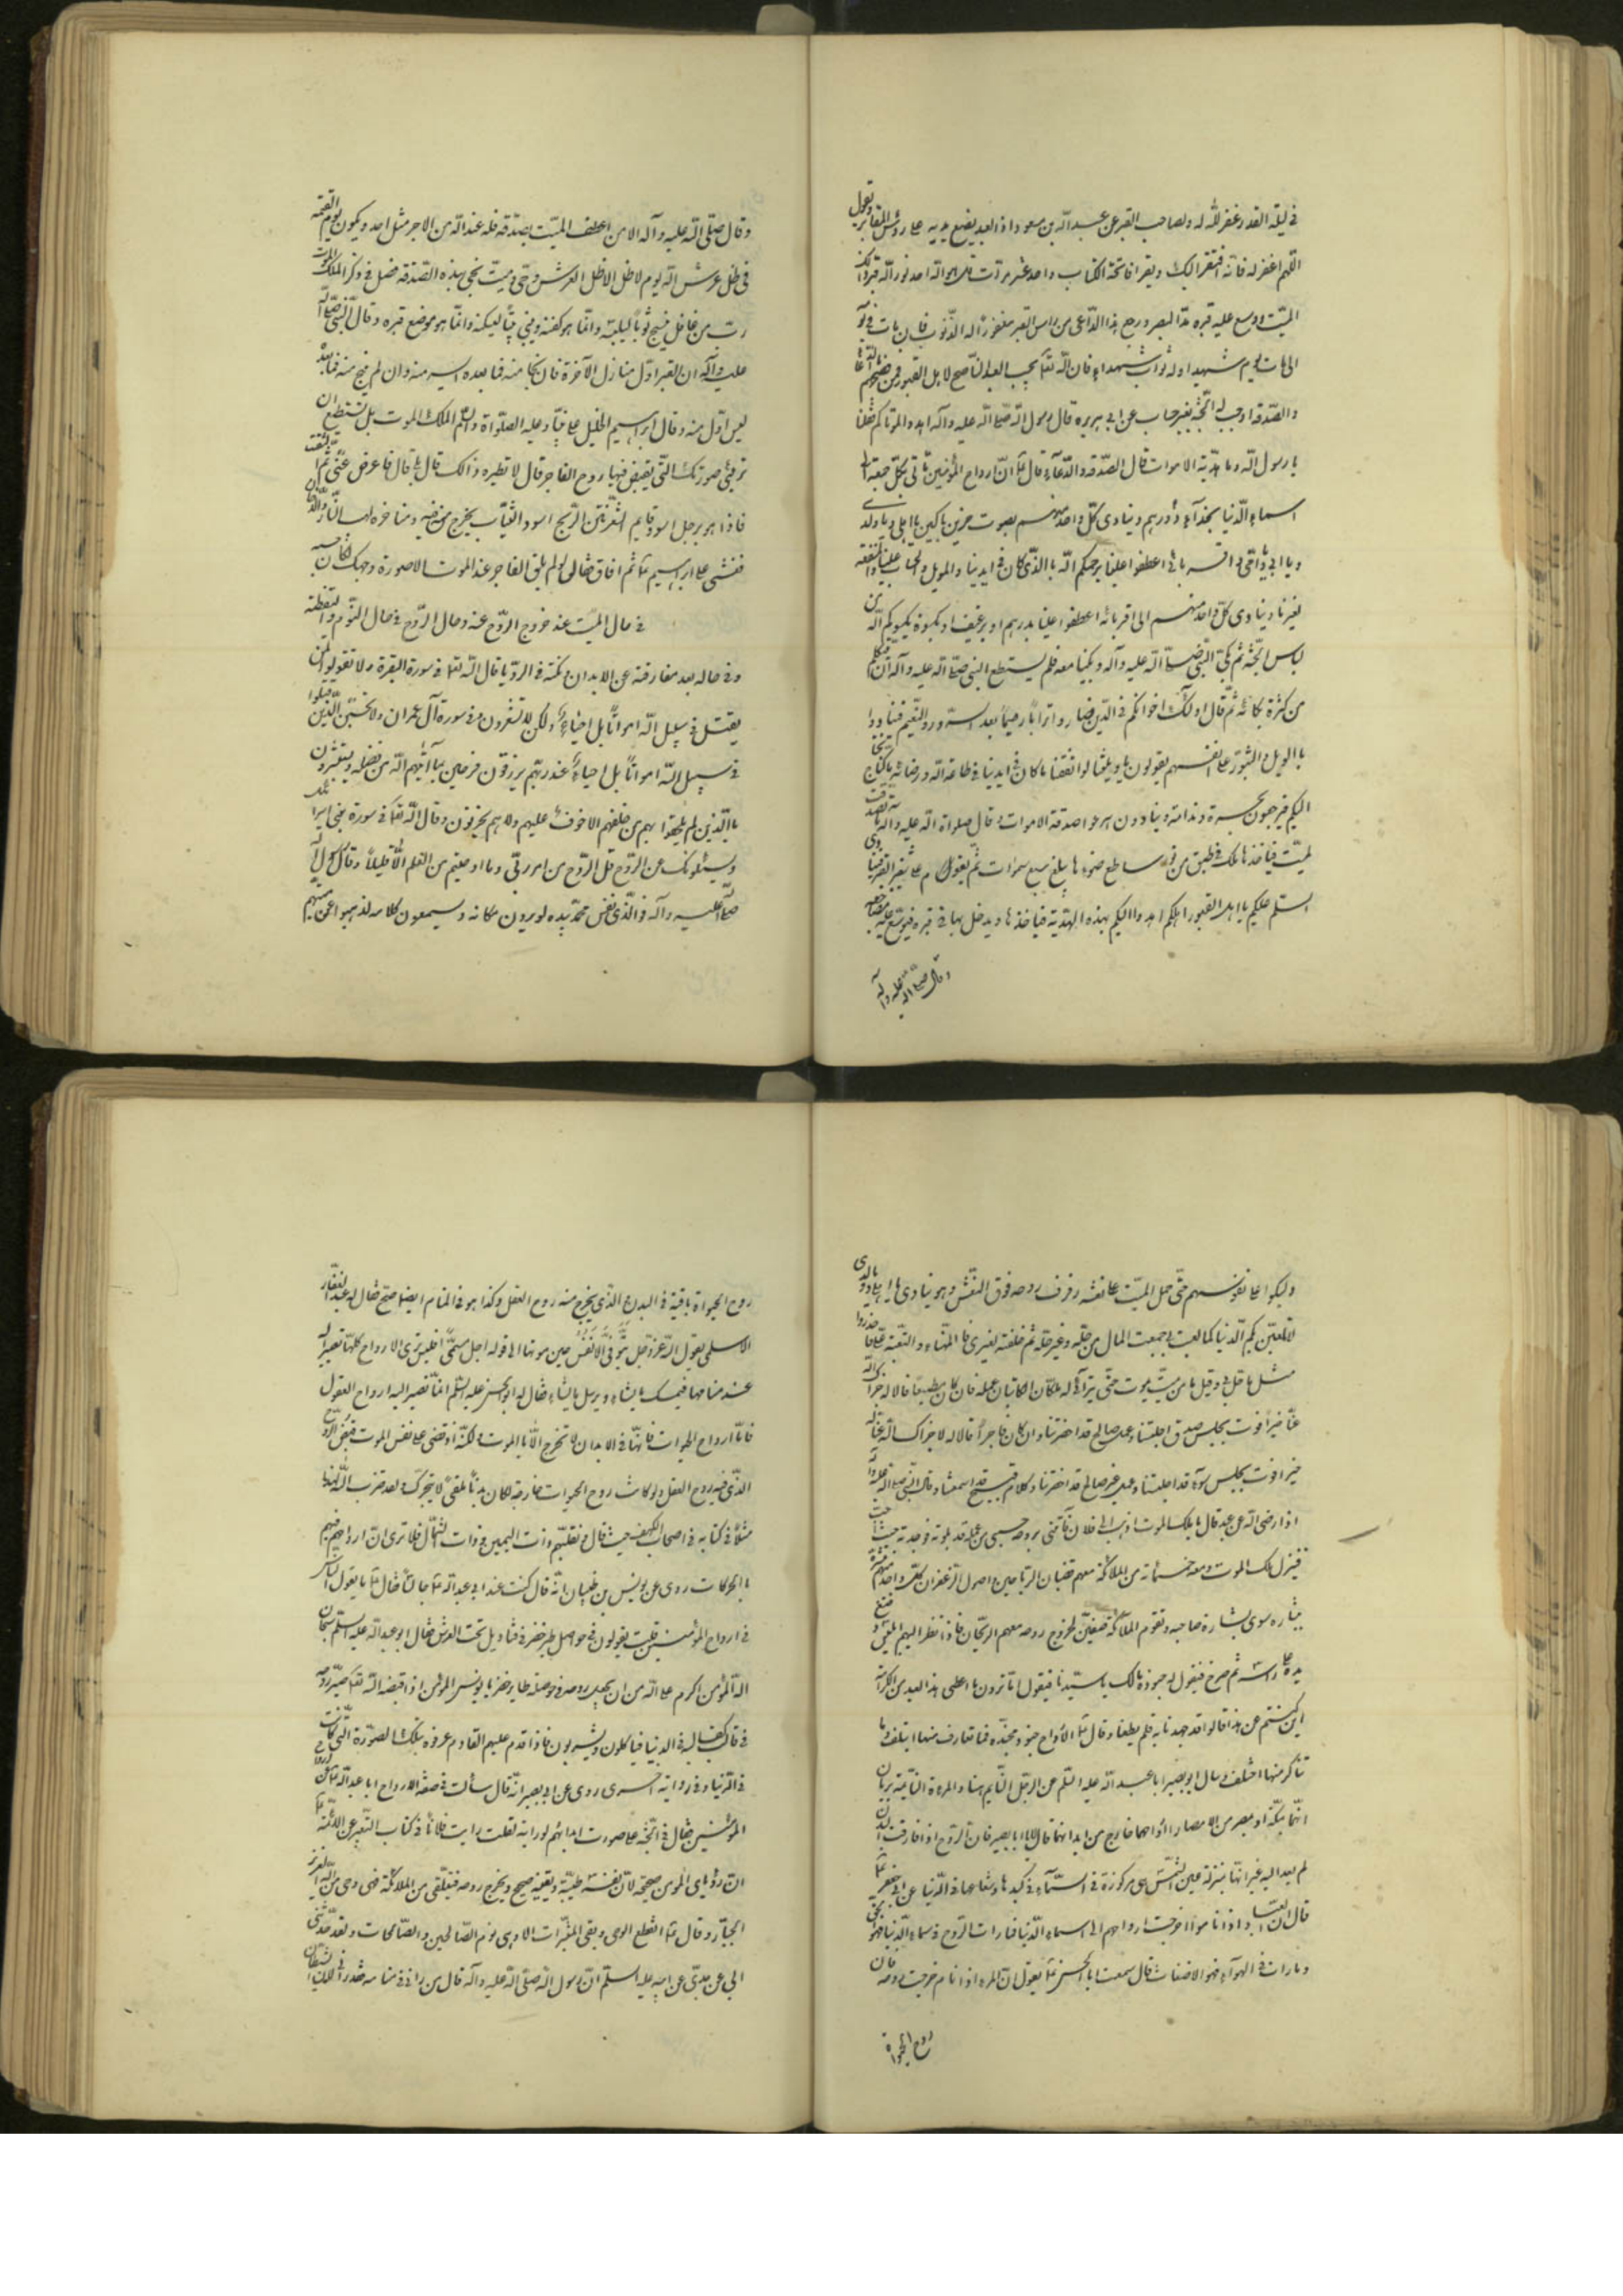 في ليلة القدر غفر الله له ولصاحب القبر عن عبد الله بن مسعود اذا العبد يضع يديه على رؤس المقابر ويقول
اللهم اغفر له فانه افتقر اليك ويقرا فاتحة الكتاب واحد عشر مرات قل هو الله احد نور الله قبر ذلك
الميت ووسع عليه قبره مد البصر ورجع هذا الداعي من راس القبر مغفورا له الذنوب فان مات في يومه
الى مات يوم شهيدا وله ثواب شهداء فان الله تعا يحب العبد الناصح لاهل القبور فمن نصحهم بالدعاء
والصدقة اوجب له الجنة بغير حساب عن ابي هريرة قال رسول الله صلى الله عليه وآله اهدوا لموتاكم فقلنا
يا رسول الله وما هدية الاموات قال الصدقة والدعاء قال ع ان ارواح المؤمنين تأتي كل جمعة الى
السماء الدنيا بحذاء دورهم وينادى كل واحد منهم بصوت حزين باكين يا اهلي ويا ولدي
ويا ابي ويا امي ويا اقربائي اعطفوا علينا يرحمكم الله بالذي كان في ايدينا والويل والحساب علينا والمنفعة
لغيرنا وينادى كل واحد منهم الى اقربائه اعطفوا علينا بدرهم او برغيف او بكسوة يكسوكم الله من
لباس الجنة ثم بكى النبي صلى الله عليه وآله وبكينا معه فلم يستطع النبي صلى الله عليه وآله ان يتكلم
من كثرة بكائه ثم قال اولئك اخوانكم في الدين فصاروا ترابا رميما بعد السرور والنعيم فينادوا
بالويل والثبور على انفسهم يقولون يا ويلنا لو انفقنا ما كان في ايدينا في طاعة الله ورضائه ما كنا نحتاج
اليكم فيرجعون بحسرة وندامة وينادون اسرعوا صدقة الاموات وقال صلوات الله عليه وآله ما تصدقت
لميت فياخذها ملك في طبق من نور ساطع ضوءها يبلغ سبع سموات ثم يقوم على شفير القبر فينادي
السلم عليكم يا اهل القبور اهلكم اهدوا اليكم بهذه الهدية فياخذها ويدخل بها في قبره فيوسع عليه مضاجعه
وقال صلى الله عليه وآله
وقال صلى الله عليه وآله الا من اعطف الميت بصدقة فله عند الله من الاجر مثل احد ويكون يوم القيمة
في ظل عرش الله يوم لا ظل الا ظل العرش وحي وميت نجى بهذه الصدقة فصل في ذكر الملك الموت
رب من غافل ينسج ثوبا ليلبسه وانما هو كفنه ويبني بيتا ليسكنه وانما هو موضع قبره وقال النبي صلى الله
عليه وآله ان القبر اول منازل الآخرة فان نجا منه فما بعده ايسر منه وان لم ينج منه فما بعده
ليس اول منه وقال ابراهيم الخليل على نبينا وعليه الصلواة والسلم الملك الموت هل تستطيع ان
تريني صورتك التي تقبض فيها روح الفاجر قال لا تطيره ذالك قال بلى قال فاعرض عني ثم التفت
فاذا هو برجل اسود قايم الشعر نتن الريح اسود الثياب يخرج من فيه ومناخره لهب النار والدخان
فغشى على ابراهيم ع ثم افاق فقال لو لم يلق الفاجر عند الموت الا صورة وجهك لكان حسبه
في حال الميت عند خروج الروح عنه وحال الروح في حال النوم واليقظة
وفي حاله بعد مفارقته عن الابدان ونكتة في الرؤيا قال الله تعا في سورة البقرة ولا تقولوا لمن
يقتل في سبيل الله امواتا بل احياء ولكن لا تشعرون وفي سورة آل عمران ولا تحسبن الذين قتلوا
في سبيل الله امواتا بل احياء عند ربهم يرزقون فرحين بما آتيهم الله من فضله ويستبشرون
بالذين لم يلحقوا بهم من خلفهم الا خوف عليهم ولا هم يحزنون وقال الله تعا في سورة بني اسرائيل
ويسئلونك عن الروح قل الروح من امر ربي وما اوتيتم من العلم الا قليلا وقال رسول الله
صلى الله عليه وآله والذي نفس محمد بيده لو يرون مكانه ويسمعون كلامه لذهبوا عن ميتهم
ولبكوا على نفوسهم حتى حمل الميت على نعشه رفرف روحه فوق النعش وهو ينادى يا اهلي ويا ولدي
لا تلعبن بكم الدنيا كما لعبت بي جمعت المال من حله وغير حله ثم خلفته لغيري فالمهناء والتبعة على فاحذروا
مثل ما حل بي وقيل ما من ميت يموت حتى يتراءى له ملكان الكاتبان عمله فان كان مطيعا قالا له جزاك الله
عنا خيرا فرب مجلس صدق اجلستنا وعمل صالح قد احضرتنا وان كان فاجرا قالا له لا جزاك الله عنا
خيرا فرب مجلس سوء قد اجلستنا وعمل غير صالح قد احضرتنا وكلام قبيح قد اسمعتنا وقال النبي صلى الله عليه وآله
اذا رضى الله عن عبد قال يا ملك الموت اذهب الى فلان فأتني بروحه حسبي من عمله قد بلوته فوجدته حيث احب
فينزل ملك الموت ومعه خمسمائة من الملائكة معهم قضبان الرياحين واصول الزعفران كل واحد منهم يبشره
ببشارة سوى بشارة صاحبه وتقوم الملائكة صفين لخروج روحه معهم الريحان فاذا نظر اليهم ابليس وضع
يده على راسه ثم صرخ فيقول له جنوده مالك يا سيدنا فيقول اما ترون ما اعطى هذا العبد من الكرامة
اين كنتم عن هذا قالوا قد جهدنا به فلم يطعنا وقال ع الارواح جنود مجندة فما تعارف منها ايتلف وما
تناكر منها اختلف وسال ابو بصير ابا عبد الله عليه السلم عن الرجل النايم هنا والمرءة النائمة يريان
انهما بمكة او بمصر من الامصار ارواحهما خارج من ابدانهما قال لا يا ابا بصير فان الروح اذا فارقت البدن
لم يعد اليه غير انها بمنزلة عين الشمس هي مركوزة في السماء في كبدها وشعاعها في الدنيا عن ابي جعفر ع
قال ان العباد اذا ناموا خرجت ارواحهم الى السماء الدنيا فما رات الروح في سماء الدنيا فهو الحق
وما رات في الهواء فهو الاضغاث قال سمعت ابا الحسن ع يقول ان المرء اذا نام خرجت روحه فان
روح الحيواة
روح الحيواة باقية في البدن والذي يخرج منه روح العقل وكذا هو في المنام ايضا صح فقال له عبد الغفار
الاسلمي يقول الله عز وجل الله يتوفى الانفس حين موتها الى قوله اجل مسمى افليس ترى الارواح كلها تصير اليه
عند منامها فيمسك ما يشاء ويرسل ما يشاء فقال له ابو الحسن عليه السلم انما تصير اليه ارواح العقول
فاما ارواح الحيوات فانها في الابدان لا تخرج الا بالموت ولكنه اذا قضى على نفس الموت قبض الروح
الذي فيه روح العقل ولو كانت روح الحيوات خارجة لكان بدنا ملقى لا يتحرك ولقد ضرب الله لهذا
مثلا في كتابه في اصحاب الكهف حيث قال ونقلبهم ذات اليمين وذات الشمال فلا ترى ان ارواحهم فيهم
بالحركات روى عن يونس بن ظبيان انه قال كنت عند ابي عبد الله ع جالسا فقال ع ما يقول الناس
في ارواح المؤمنين قلت يقولون في حواصل طير خضر في قناديل تحت العرش فقال ابو عبد الله عليه السلم سبحان
الله المؤمن اكرم على الله من ان يجعل روحه في حوصلة طاير خضر يا يونس المؤمن اذا قبضه الله تعا صير روحه
في قالب كقالبه في الدنيا فياكلون ويشربون فاذا قدم عليهم القادم عرفوه بتلك الصورة التي كانت
في الدنيا وفي رواية اخرى روى عن ابي بصير انه قال سألت في صفة الارواح ابا عبد الله ع عن ارواح
المؤمنين فقال في الجنة على صورت ابدانهم لو رايته لقلت رايت فلانا في كتاب التعبير عن الائمة ع
ان رؤياى المومن صحيحة لان نفسه طيبة ويقينه صحيح ويخرج روحه فيتلقى من الملائكة فهي وحي من الله العزيز
الجبار وقال ع انقطع الوحي وبقى المبشرات الا وهي نوم الصالحين والصالحات ولقد حدثني
ابي عن جدي عن ابيه عليه السلم ان رسول الله صلى الله عليه وآله قال من راني في منامه فقد رآني لان الشيطان